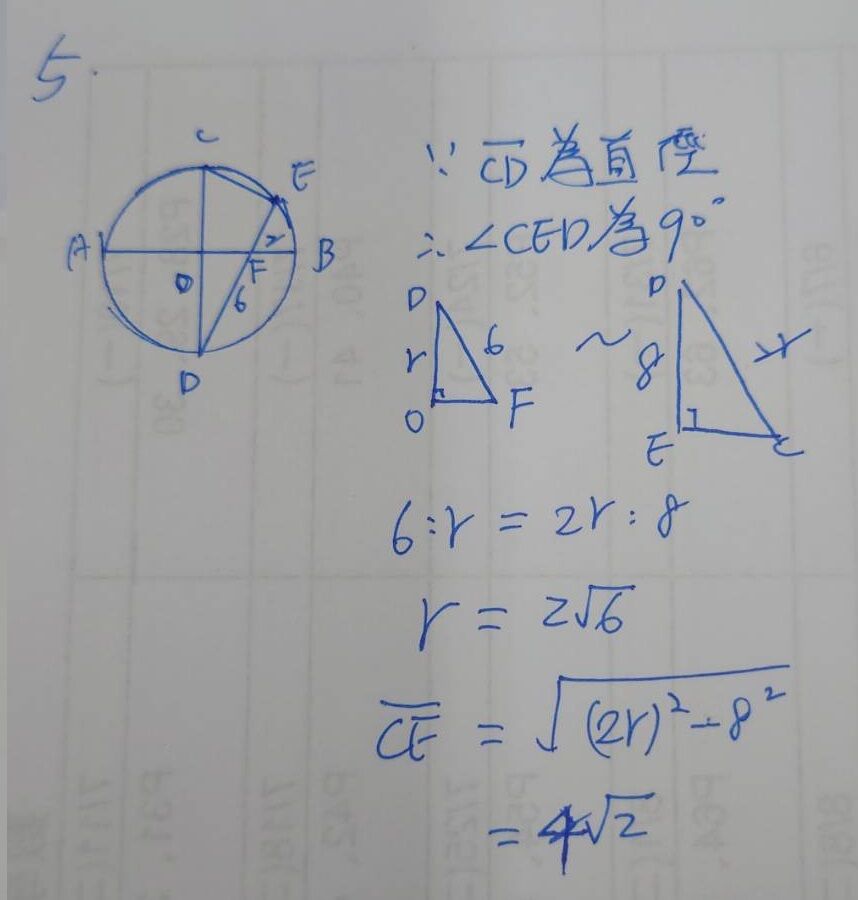 5.
C
E
A
2
B
O
F
6
D
∵ CD為直徑
∴ ∠CED為90°
D
r
6
O
F
~
D
8
2r
E
C
6:r = 2r:8
r = 2√6
CE = √(2r)²-8²
= 4√2